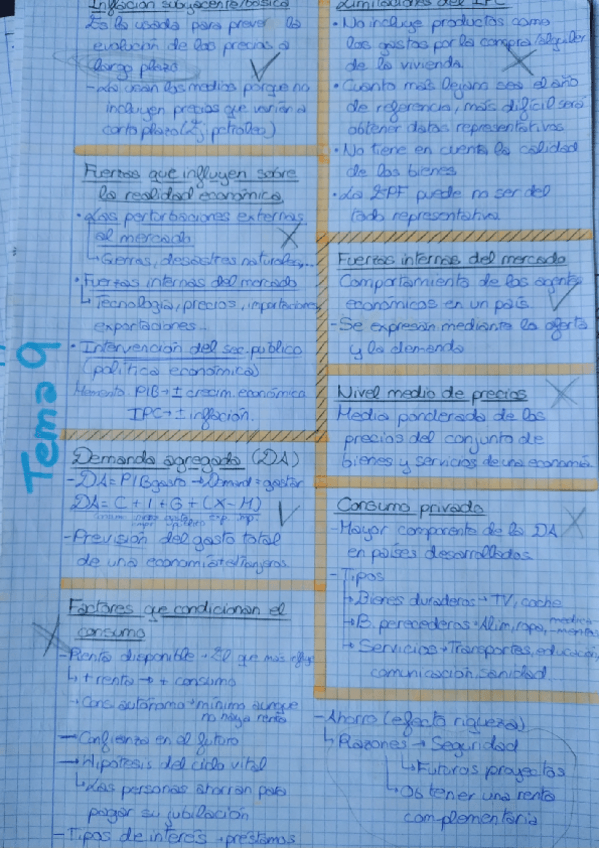 Inflación subyacente/básica
Es la usada para prever la
evolución de los precios a
largo plazo
- La usan los medios porque no
incluyen precios que varían a
corto plazo (Ej: petróleo)
Fuerzas que influyen sobre
la realidad económica
• Las perturbaciones externas
al mercado
↳ Gerras, desastres naturales,...
• Fuerzas internas del mercado
↳ Tecnología, precios, importaciones
exportaciones...
• Intervención del sec. público
(política económica)
PIB → ± crecim. económica
IPC → ± inflación.
Tema 9
Demanda agregada (DA)
- DA = PIB gasto → Demand = gastar
DA = C + I + G + (X - M)
- Previsión del gasto total
de una economía
Factores que condicionan el
consumo
- Renta disponible → El que más influye
↳ + renta → + consumo
→ Cons. autónomo → mínimo aunque
no haya renta
- Confianza en el futuro
- Hipótesis del ciclo vital
↳ Las personas ahorran para
pagar su jubilación
- Tipos de interés → préstamos
Limitaciones del IPC
• No incluye productos como
los gastos por la compra/alquiler
de la vivienda
• Cuanto más lejano sea el año
de referencia, más difícil será
obtener datos representativos
• No tiene en cuenta la calidad
de los bienes
• La EPF puede no ser del
todo representativa
Fuerzas internas del mercado
Comportamiento de los agentes
económicos en un país
- Se expresan mediante la oferta
y la demanda
Nivel medio de precios
Media ponderada de los
precios del conjunto de
bienes y servicios de una economía
Consumo privado
- Mayor componente de la DA
en países desarrollados
- Tipos
↳ Bienes duraderos → TV, coche
↳ B. perecederos → Alim, ropa, medicamentos
↳ Servicios → Transportes, educación,
comunicación, sanidad
- Ahorro (efecto riqueza)
↳ Razones → Seguridad
↳ Futuros proyectos
↳ Obtener una renta
complementaria